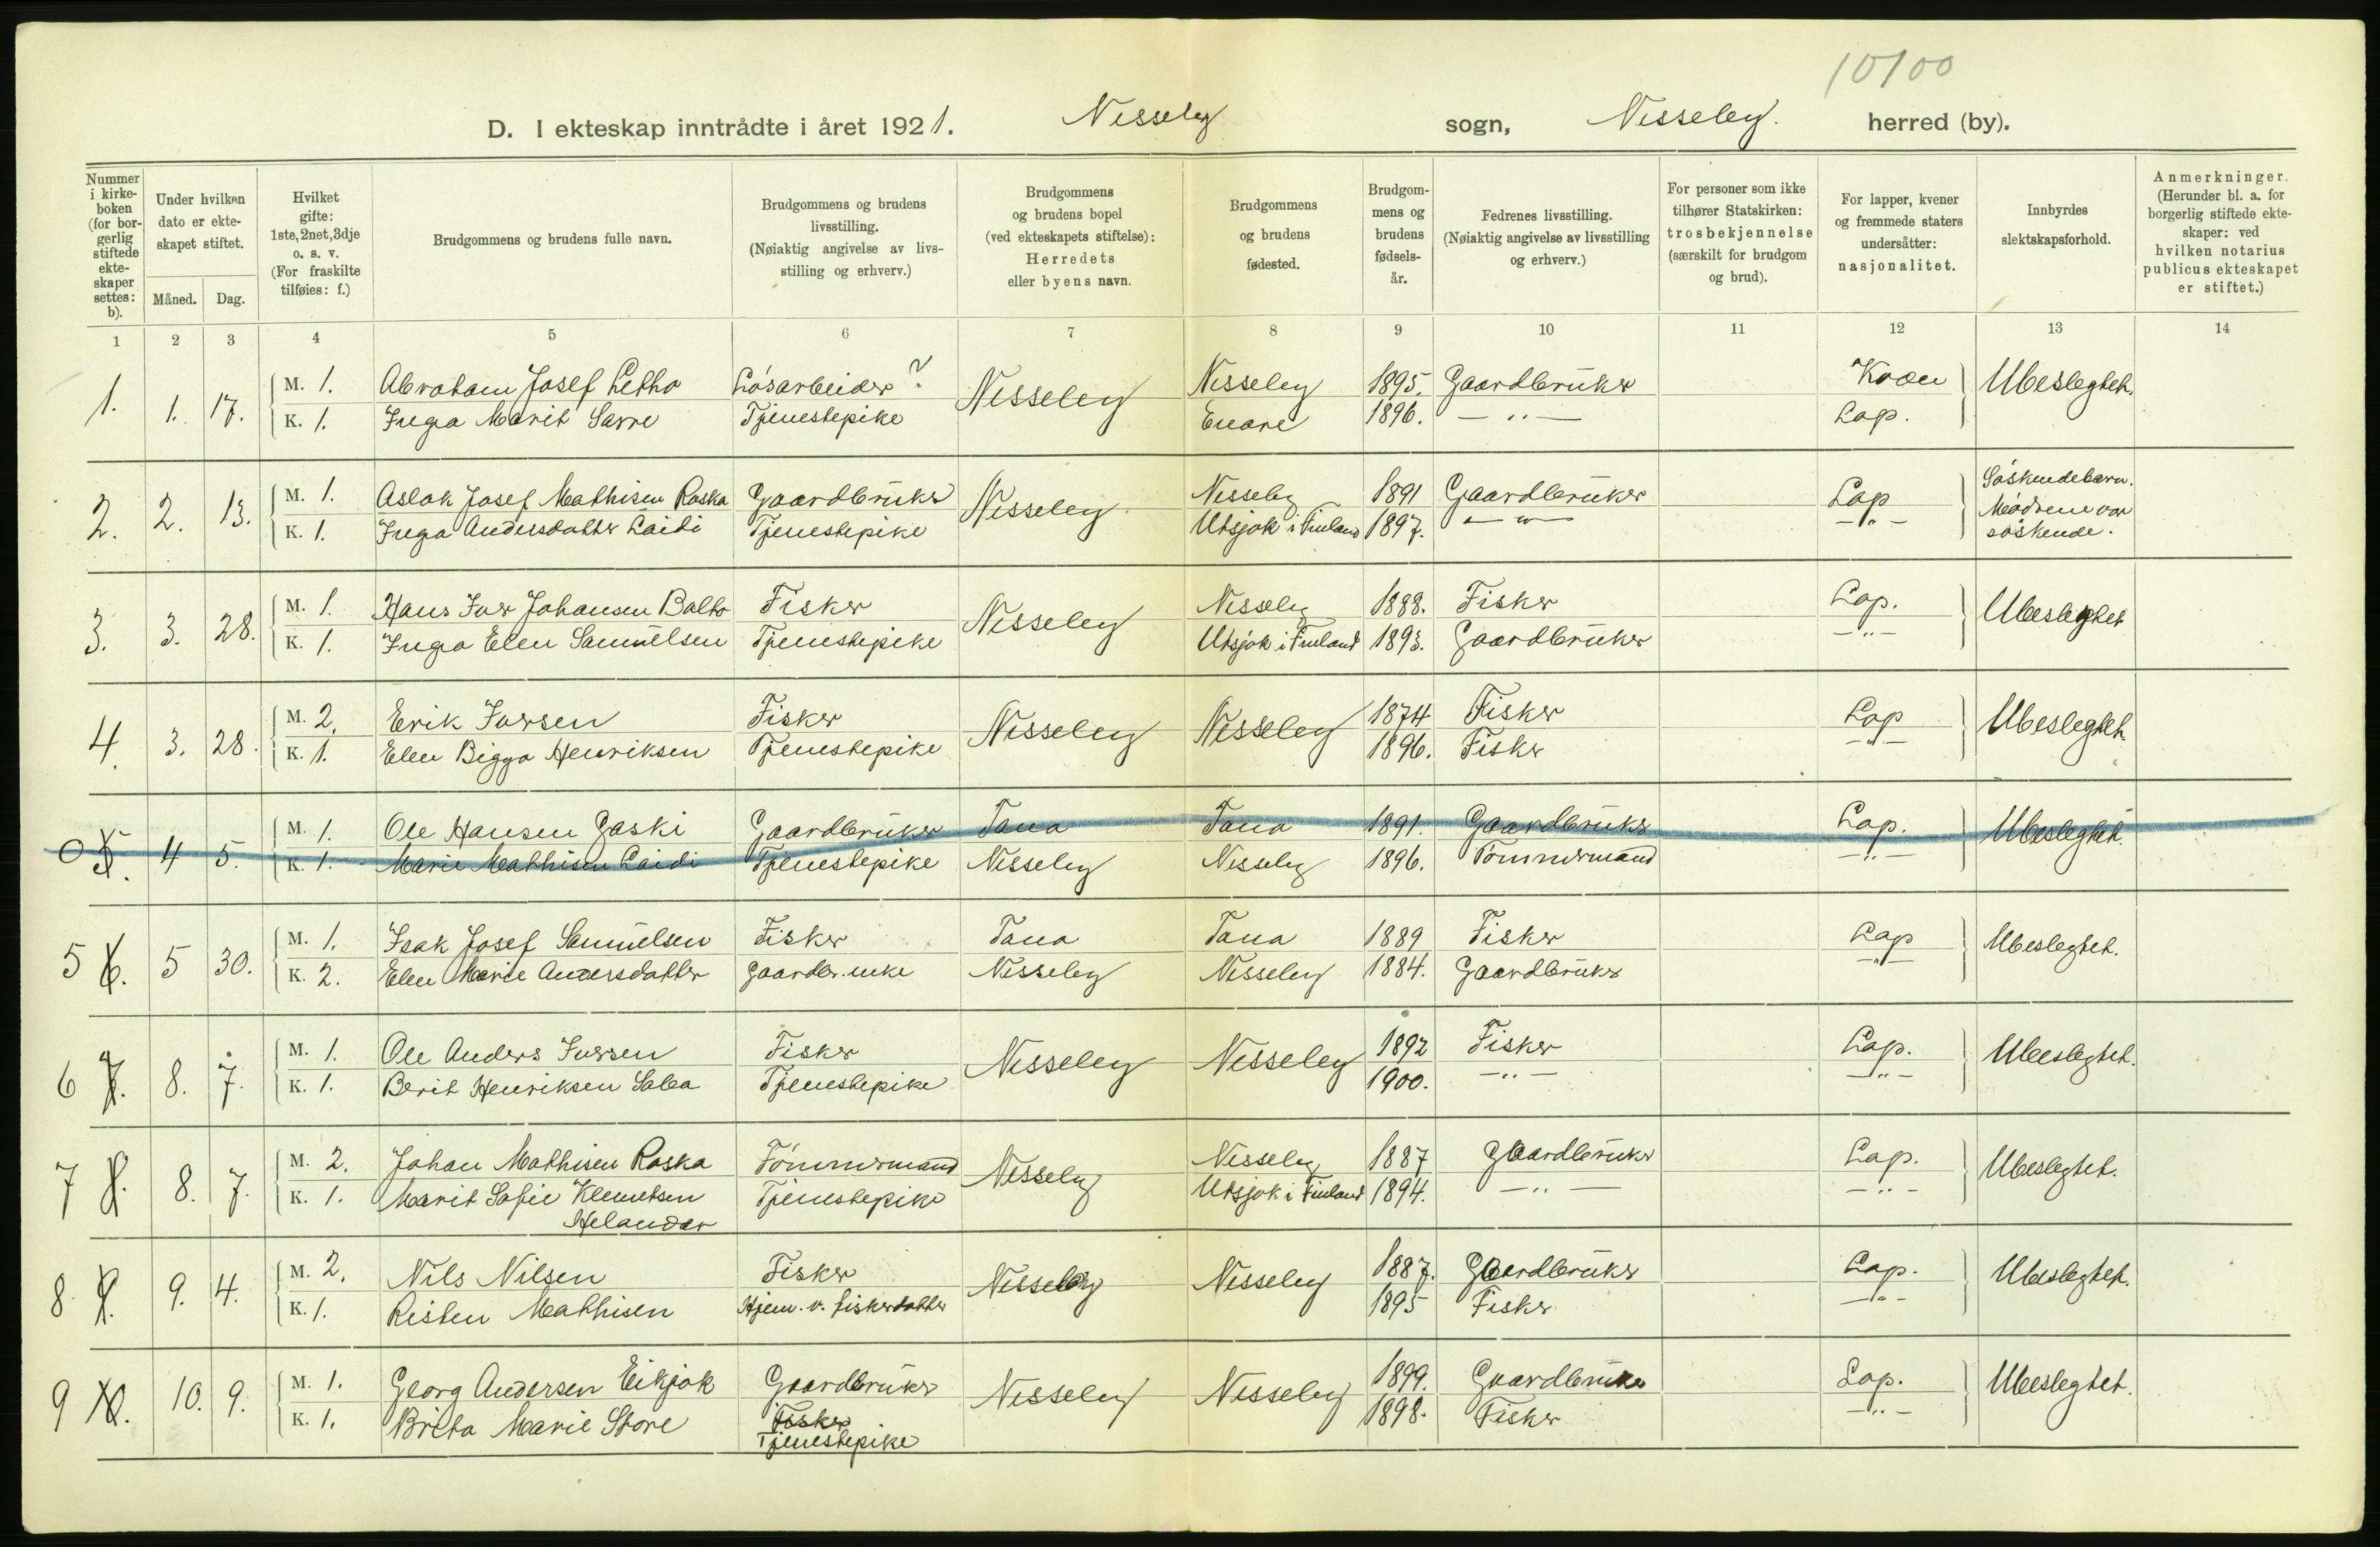 10100
D. I ekteskap inntrådte i året 1921. Nesseby sogn, Nesseby. herred (by).
Nummer i kirke-boken (for bor-gerlig stiftede ekte-skaper settes: b).
Under hvilken dato er ekte-skapet stiftet.
Måned. Dag.
Hvilket gifte: 1ste, 2net, 3dje o. s. v. (For fraskilte tilføies: f.)
Brudgommens og brudens fulle navn.
Brudgommens og brudens livsstilling. (Nøiaktig angivelse av livs-stilling og erhverv.)
Brudgommens og brudens bopel (ved ekteskapets stiftelse): Herredets eller byens navn.
Brudgommens og brudens fødested.
Brudgom-mens og brudens fødsels-år.
Fedrenes livsstilling. (Nøiaktig angivelse av livsstilling og erhverv.)
For personer som ikke tilhører Statskirken: trosbekjennelse (særskilt for brudgom og brud).
For lapper, kvener og fremmede staters undersåtter: nasjonalitet.
Innbyrdes slektskapsforhold.
Anmerkninger. (Herunder bl. a. for borgerlig stiftede ekte-skaper: ved hvilken notarius publicus ekteskapet er stiftet.)
1 2 3 4 5 6 7 8 9 10 11 12 13 14
1. 1. 17. M. 1. Abraham Josef Letho Løsarbeider ? Nesseby Nesseby 1895. Gaardbruker Kvæn Ubeslegtet.
K. 1. Inga Marit Sarre Tjenestepike Enare 1896. — ,, — Lap.
2. 2. 13. M. 1. Aslak Josef Mathisen Raska Gaardbruker Nesseby Nesseby 1891 Gaardbruker Lap Søskendebarn.
K. 1. Inga Andersdatter Laidi Tjenestepike Utsjok i Finland 1897. — ,, — — ,, — Mødrene var
søskende.
3. 3. 28. M. 1. Hans Iver Johansen Balto Fisker Nesseby Nesseby 1888. Fisker Lap. Ubeslegtet
K. 1. Inga Elen Samuelsen Tjenestepike Utsjok i Finland 1893. Gaardbruker — ,, —
4. 3. 28. M. 2. Erik Iversen Fisker Nesseby Nesseby 1874 Fisker Lap Ubeslegtet.
K. 1. Elen Bigga Henriksen Tjenestepike 1896. Fisker — ,, —
0 5. 4 5. M. 1. Ole Hansen Gaski Gaardbruker Tana Tana 1891. Gaardbruker Lap. Ubeslegtet.
K. 1. Marie Mathisen Laidi Tjenestepike Nesseby Nesseby 1896. Tømmermand — ,, —
5 6. 5 30. M. 1. Isak Josef Samuelsen Fisker Tana Tana 1889 Fisker Lap Ubeslegtet.
K. 2. Elen Marie Andersdatter Gaardbr. enke Nesseby Nesseby 1884. Gaardbruker — ,, —
6 7. 8. 7. M. 1. Ole Anders Iversen Fisker Nesseby Nesseby 1892 Fisker Lap. Ubeslegtet.
K. 1. Berit Henriksen Saba Tjenestepike 1900. — ,, — — ,, —
7 8. 8. 7. M. 2. Johan Mathisen Raska Tømmermand Nesseby Nesseby 1887 Gaardbruker Lap. Ubeslegtet.
K. 1. Marit Sofie Klemetsen Tjenestepike Utsjok i Finland 1894. — ,, — — ,, —
Helander
8 9. 9. 4. M. 2. Nils Nilsen Fisker Nesseby Nesseby 1887. Gaardbruker Lap. Ubeslegtet.
K. 1. Risten Mathisen Hjem. v. fiskerdatter 1895 Fisker — ,, —
9 10. 10. 9. M. 1. Georg Andersen Eikjok Gaardbruker Nesseby Nesseby 1899. Gaardbruker Lap. Ubeslegtet.
K. 1. Brita Marie Store Fisker 1898. Fisker — ,, —
Tjenestepike